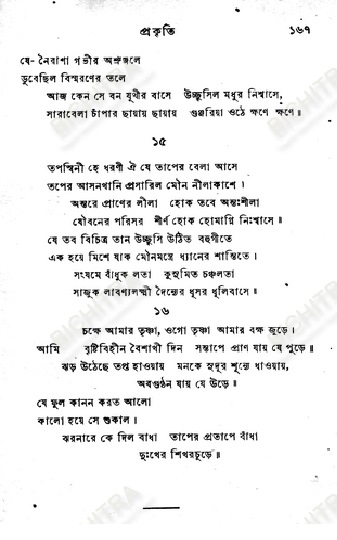 প্রকৃতি ১৬৭
যে- নৈরাশা গভীর অশ্রুজলে
ডুবেছিল বিস্মরণের তলে
আজ কেন সে বন যূথীর বাসে উচ্ছ্বসিল মধুর নিশ্বাসে,
সারাবেলা চাঁপার ছায়ায় ছায়ায় গুঞ্জরিয়া ওঠে ক্ষণে ক্ষণে ॥
১৫
তপস্বিনী হে ধরণী ঐ যে তাপের বেলা আসে
তপের আসনখানি প্রসারিল মৌন নীলাকাশে ।
অন্তরে প্রাণের লীলা হোক তবে অন্তঃশীলা
যৌবনের পরিসর শীর্ণ হোক হোমাগ্নি নিঃশ্বাসে ॥
যে তব বিচিত্র তান উচ্ছ্বসি উঠিত বহুগীতে
এক হয়ে মিশে যাক মৌনমন্ত্রে ধ্যানের শান্তিতে ।
সংযমে বাঁধুক লতা কুসুমিত চঞ্চলতা
সাজুক লাবণ্যলক্ষ্মী দৈন্যের ধূসর ধূলিবাসে ॥
১৬
চক্ষে আমার তৃষ্ণা, ওগো তৃষ্ণা আমার বক্ষ জুড়ে ।
আমি বৃষ্টিবিহীন বৈশাখী দিন সন্তাপে প্রাণ যায় যে পুড়ে ॥
ঝড় উঠেছে তপ্ত হাওয়ায় মনকে সুদূর শূন্যে ধাওয়ায়,
অবগুণ্ঠন যায় যে উড়ে ॥
যে ফুল কানন করত আলো
কালো হয়ে সে শুকাল ।
ঝরনারে কে দিল বাধা তাপের প্রতাপে বাঁধা
দুঃখের শিখরচূড়ে ॥